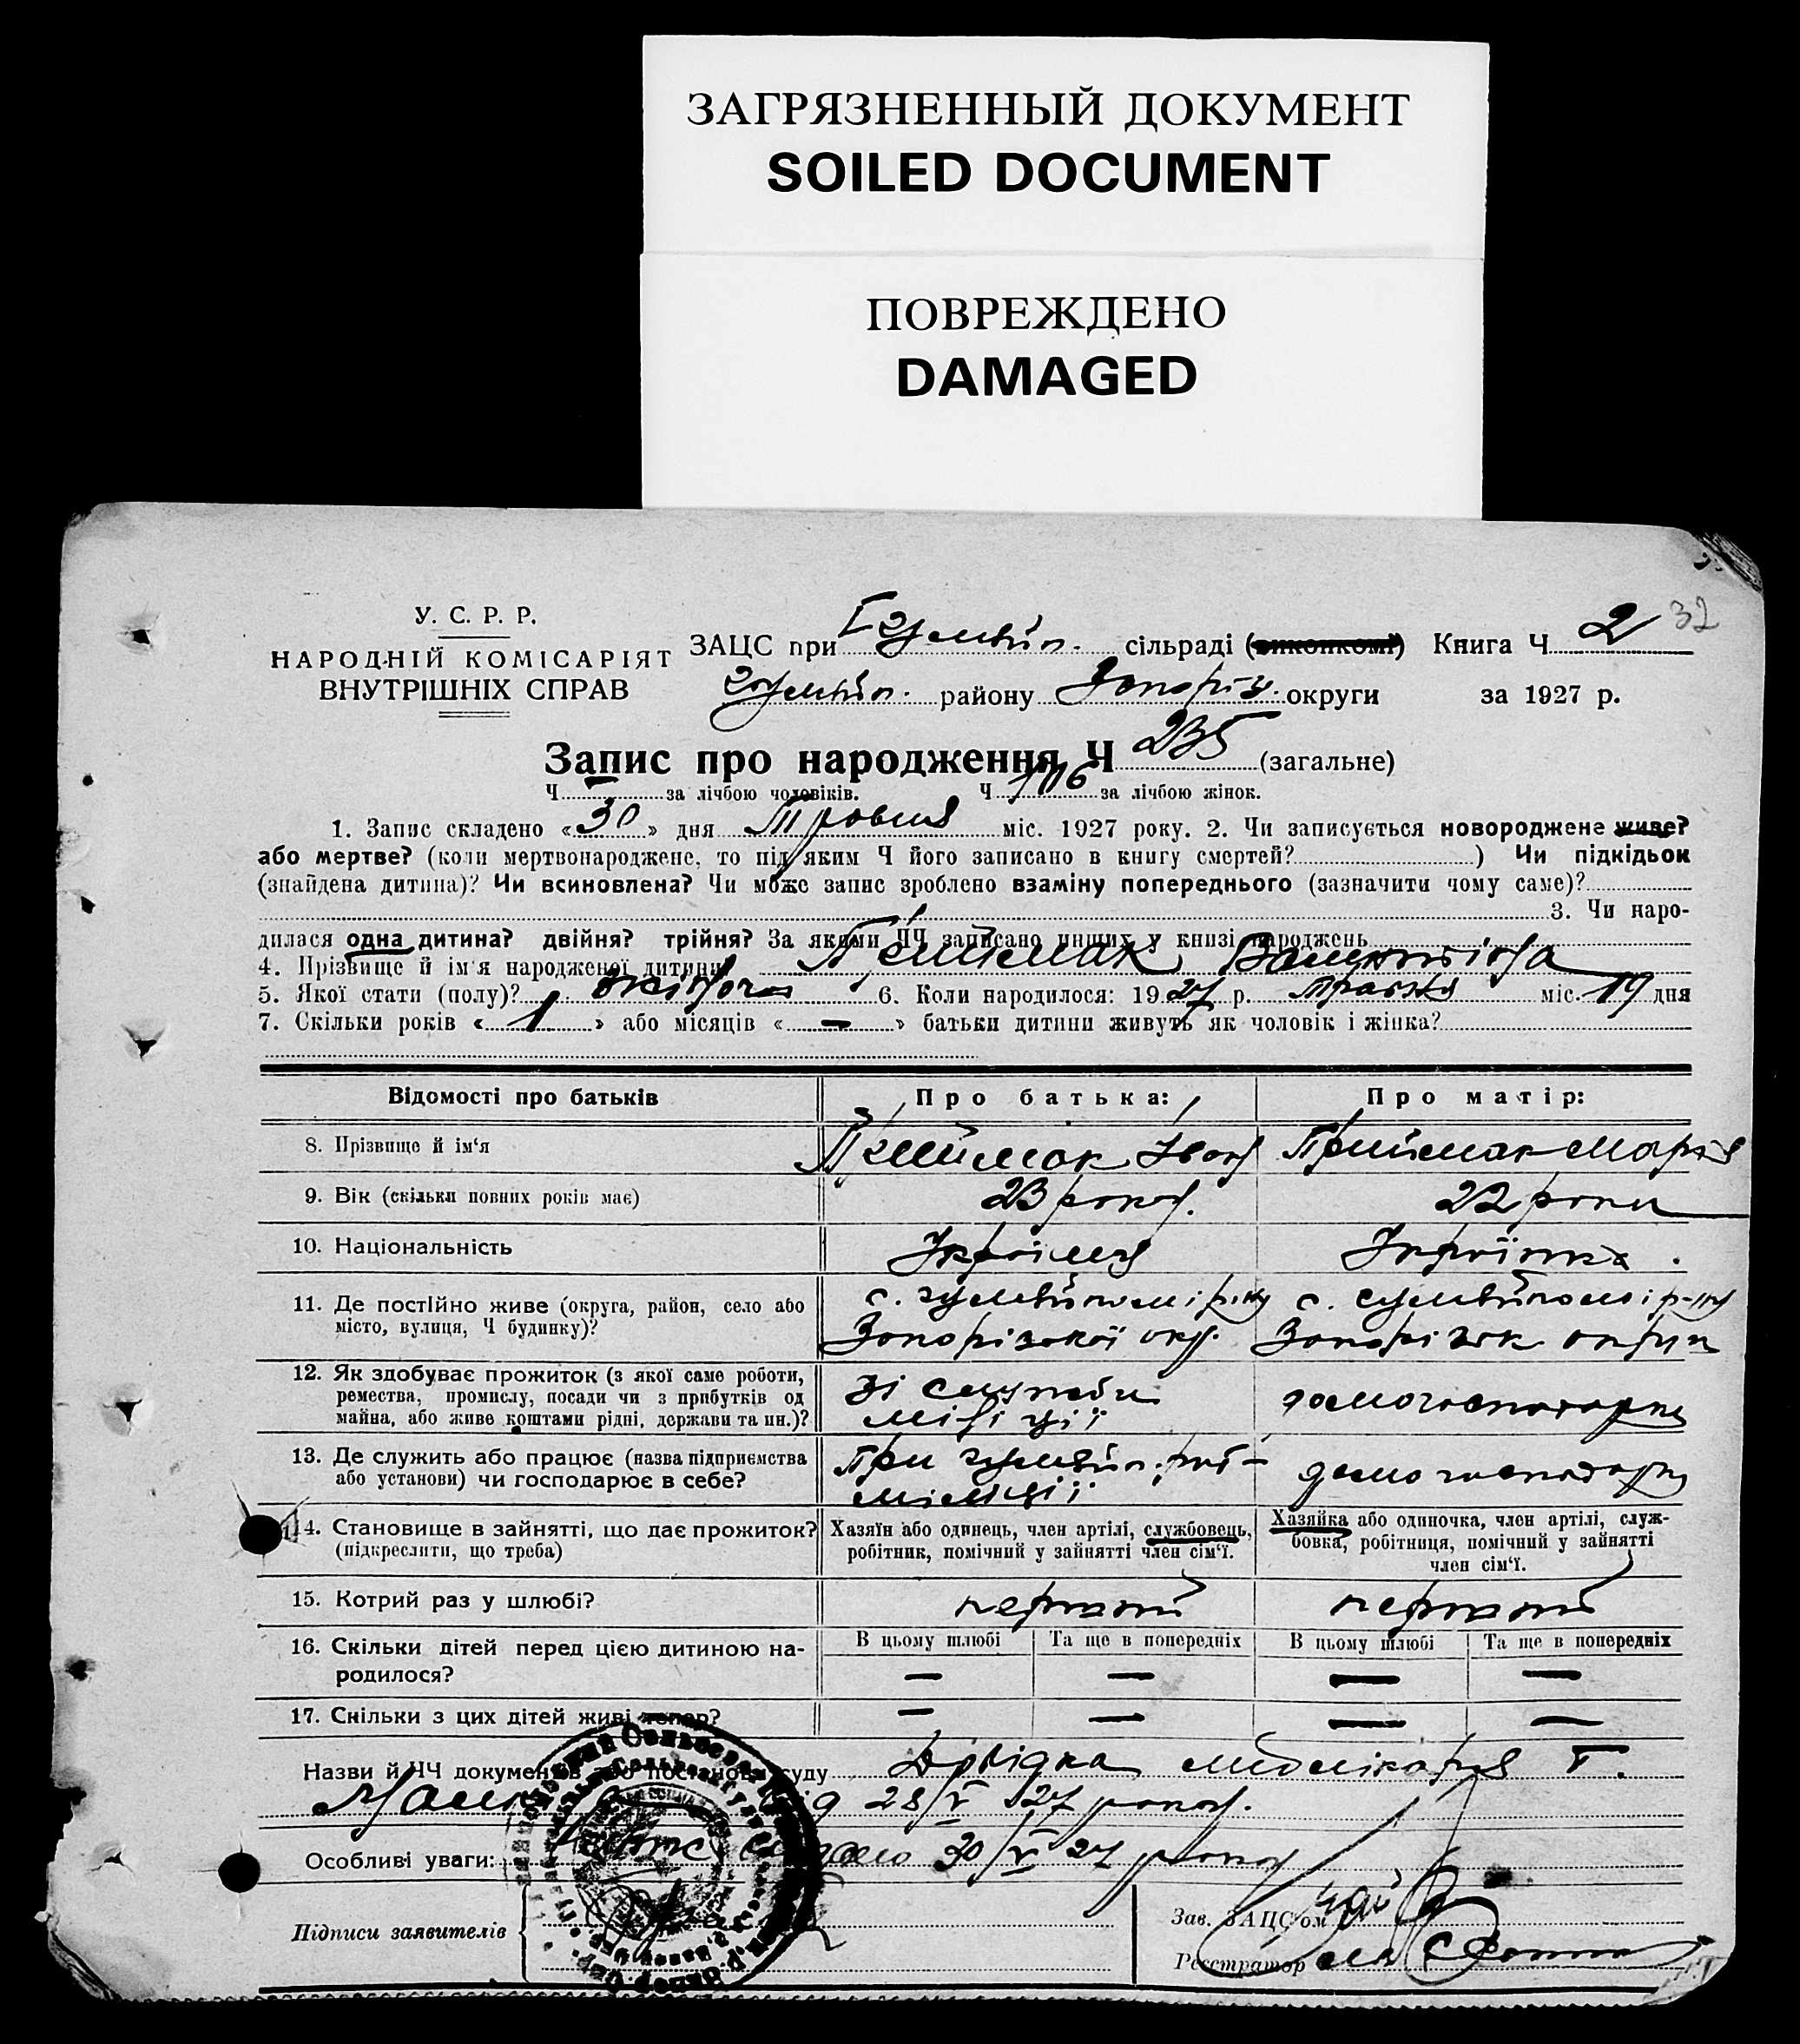 ЗАГРЯЗНЕННЫЙ ДОКУМЕНТ
SOILED DOCUMENT
ПОВРЕЖДЕНО
DAMAGED
32
У. С. Р. Р.
НАРОДНІЙ КОМІСАРІЯТ
ВНУТРІШНІХ СПРАВ
ЗАЦС при Гуляйп. сільраді (виконкомі) Книга Ч. 2
Гуляйп. району Запоріз. округи за 1927 р.
Запис про народження Ч 235 (загальне)
Ч. — за лічбою чоловіків. Ч. 106 за лічбою жінок.
1. Запис складено «30» дня Травня міс. 1927 року. 2. Чи записується новороджене живе?
або мертве? (коли мертвонароджене, то під яким Ч його записано в книгу смертей? ) Чи підкідьок
(знайдена дитина)? Чи всиновлена? Чи може запис зроблено взаміну попереднього (зазначити чому саме)?
3. Чи наро-
дилася одна дитина? двійня? трійня? За якими ЧЧ записано инших у книзі народжень
4. Прізвище й ім'я народженої дитини Приймак Валентіна
5. Якої стати (полу)? жіноча 6. Коли народилося: 1927 р. травня міс. 19 дня
7. Скільки років «1» або місяців «—» батьки дитини живуть як чоловік і жінка?
Відомості про батьків Про батька: Про матір:
8. Прізвище й ім'я Приймак Іван Приймак Марія
9. Вік (скільки повних років має) 23 роков. 22 роки
10. Національність Українець Українка.
11. Де постійно живе (округа, район, село або
місто, вулиця, Ч будинку)?
с. Гуляйполе і р-ну с. Гуляйполе і р-ну
Запорізької окр. Запорізьк округи
12. Як здобуває прожиток (з якої саме роботи,
ремества, промислу, посади чи з прибутків од
майна, або живе коштами рідні, держави та ин.)?
зі служби
міліції
домогосподарка
13. Де служить або працює (назва підприємства
або установи) чи господарює в себе?
При Гуляйп. рай-
міліції
домогосподарка
14. Становище в зайнятті, що дає прожиток?
(підкреслити, що треба)
Хазяїн або одинець, член артілі, службовець,
робітник, помічний у зайнятті член сім'ї.
Хазяйка або одиночка, член артілі, служ-
бовка, робітниця, помічний у зайнятті
член сім'ї.
15. Котрий раз у шлюбі? перший перший
16. Скільки дітей перед цією дитиною на-
родилося?
В цьому шлюбі Та ще в попередніх В цьому шлюбі Та ще в попередніх
— — — —
17. Скільки з цих дітей живі тепер? — — — —
Назви й ЧЧ документів або постанови суду Довідка
від 28/V 27 роков.
Особливі уваги: 30/V 27 роков
Підписи заявителів
Зав. ЗАЦС'ом
Реєстратор